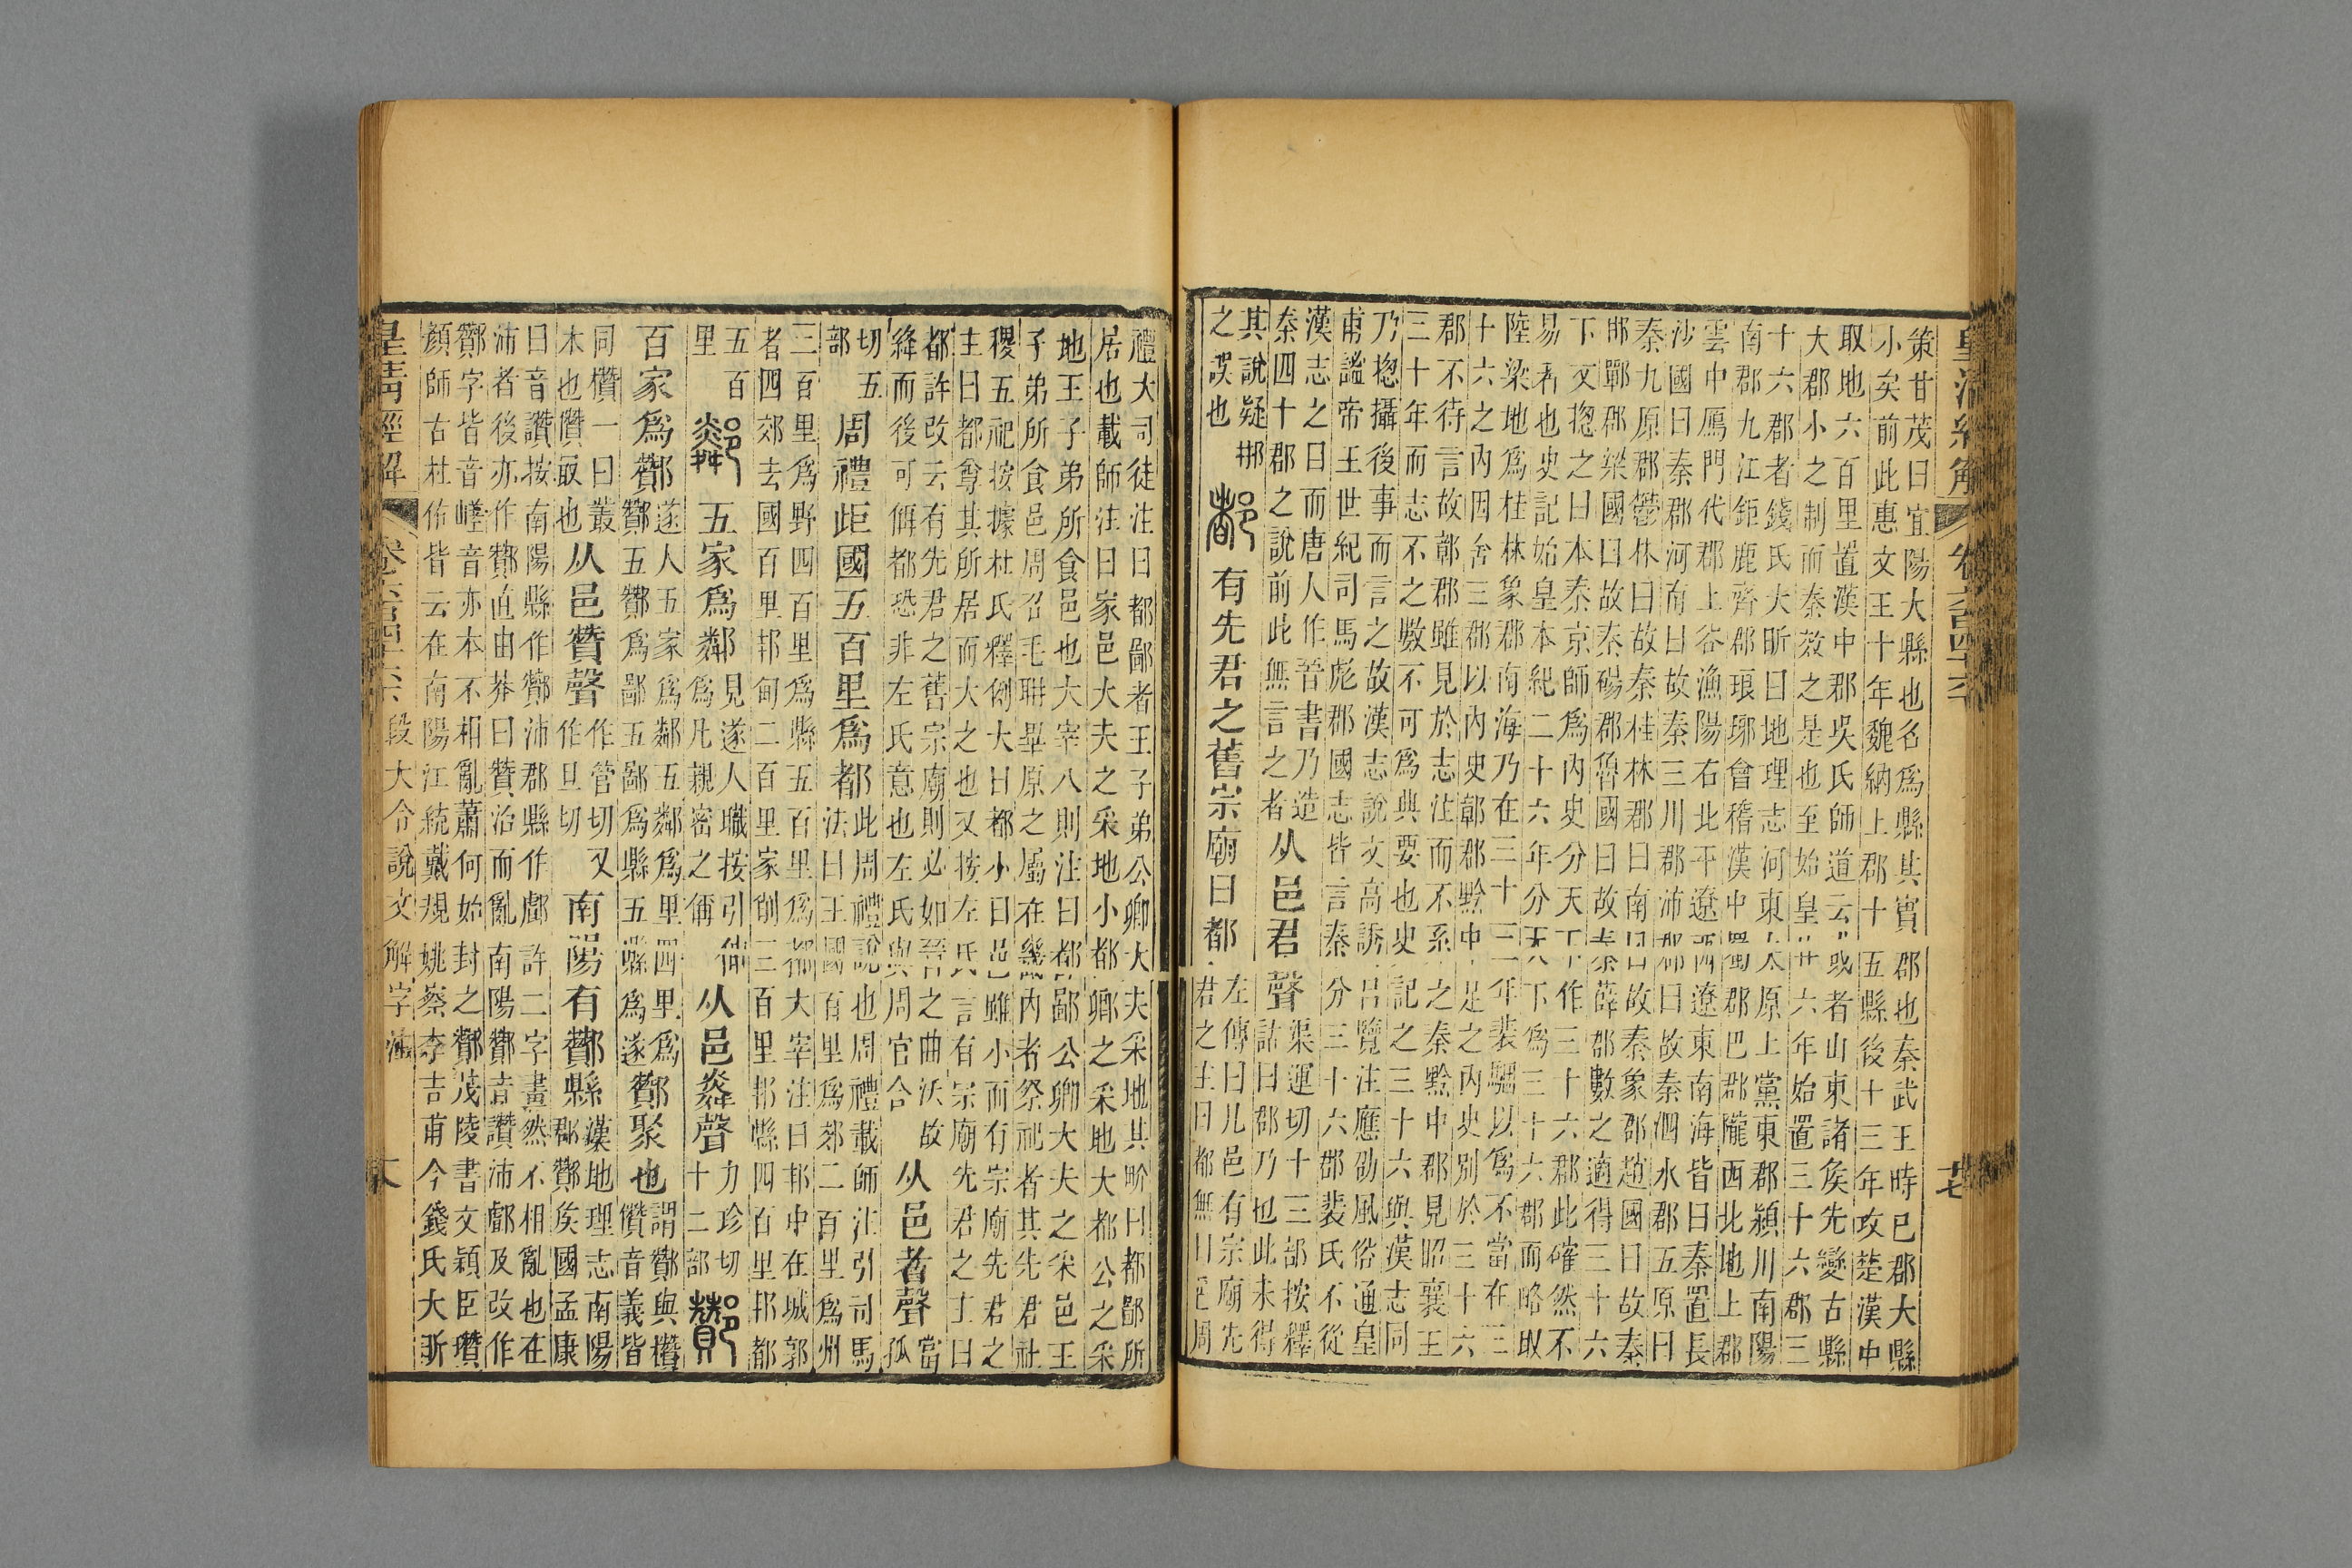 皇清經解 卷六百四十六 十七
策甘茂曰宜陽大縣也名爲縣其實郡也秦武王時已郡大縣
小矣前此惠文王十年魏納上郡十五縣後十三年攻楚漢中
取地六百里置漢中郡吳氏師道云或者山東諸矦先變古縣
大郡小之制而秦效之是也至始皇廿六年始置三十六郡三
十六郡者錢氏大昕曰地理志河東太原上黨東郡潁川南陽
南郡九江鉅鹿齊郡琅琊會稽漢中蜀郡巴郡隴西北地上郡
雲中鴈門代郡上谷漁陽右北平遼西遼東南海皆曰秦置長
沙國曰秦郡河南曰故秦三川郡沛郡曰故秦泗水郡五原曰
秦九原郡鬱林曰故秦桂林郡日南曰故秦象郡趙國曰故秦
邯鄲郡梁國曰故秦碭郡魯國曰故秦薛郡數之適得三十六
下文揔之曰本秦京師爲內史分天下作三十六郡此確然不
易者也史記始皇本紀二十六年分天下爲三十六郡而略取
陸梁地爲桂林象郡南海乃在三十三年裴駰以爲不當在三
十六之內因舍三郡以內史鄣郡黔中足之內史別於三十六
郡不待言故鄣郡雖見於志注而不系之秦黔中郡見昭襄王
三十年而志不之數不可爲典要也史記之三十六與漢志同
乃揔攝後事而言之故漢志說文高誘呂覽注應劭風俗通皇
甫謐帝王世紀司馬彪郡國志皆言秦分三十六郡裴氏不從
漢志之曰而唐人作晉書乃造
秦四十郡之說前此無言之者
从邑君聲
渠運切十三部按釋
詁曰郡乃也此未得
其說疑郡
之誤也
都
有先君之舊宗廟曰都
左傳曰凡邑有宗廟先
君之主曰都無曰邑周
禮大司徒注曰都鄙者王子弟公卿大夫采地其畍曰都鄙所
居也載師注曰家邑大夫之采地小都卿之采地大都公之采
地王子弟所食邑也大宰八則注曰都鄙公卿大夫之采邑王
子弟所食邑周召毛聃畢原之屬在畿內者祭祀者其先君社
稷五祀按據杜氏釋例大曰都小曰邑雖小而有宗廟先君之
主曰都尊其所居而大之也又按左氏言有宗廟先君之主曰
都許改云有先君之舊宗廟則必如晉之曲沃故
絳而後可偁都恐非左氏意也左氏與周官合
从邑者聲
當孤
切五
部
周禮歫國五百里爲都
此周禮說也周禮載師注引司馬
法曰王國百里爲郊二百里爲州
三百里爲野四百里爲縣五百里爲都大宰注曰邦中在城郭
者四郊去國百里邦甸二百里家削三百里邦縣四百里邦都
五百
里
鄰
五家爲鄰
見遂人職按引伸
爲凡親密之偁
从邑粦聲
力珍切
十二部
酇
百家爲酇
遂人五家爲鄰五鄰爲里四里爲
酇五酇爲鄙五鄙爲縣五縣爲遂
酇聚也
謂酇與欑
儹音義皆
同欑一曰叢
木也儹冣也
从邑贊聲
作管切又
作旦切
南陽有酇縣
漢地理志南陽
郡酇矦國孟康
曰音讚按南陽縣作酇沛郡縣作䣜許二字畫然不相亂也在
沛者後亦作酇直由莽曰贊治而亂南陽酇音讚沛䣜及改作
酇字皆音嵯音亦本不相亂蕭何始封之酇茂陵書文穎臣瓚
顏師古杜佑皆云在南陽江統戴規姚察李吉甫今錢氏大昕
皇清經解 卷六百四十六 段大令說文解字注 大